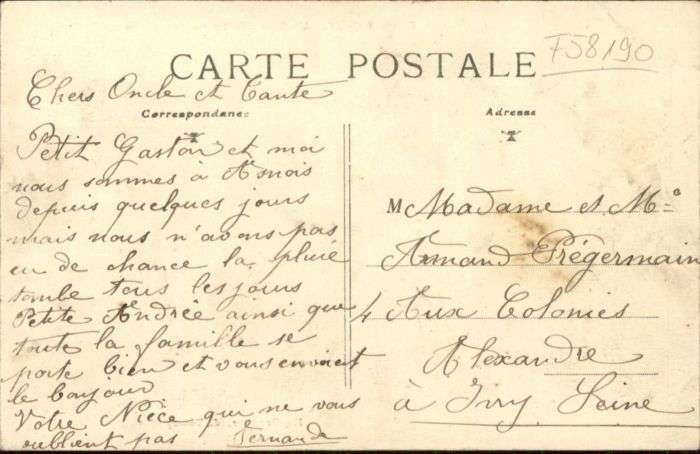 F58190
CARTE POSTALE
Chers Oncle et Tante
Correspondance
Petit Gaston et moi
nous sommes à Asnois
depuis quelques jours
mais nous n'avons pas
eu de chance la pluie
tombe tous les jours
Petite Andrée ainsi que
toute la famille se
porte bien et vous envoient
le bonjour
Votre Nièce qui ne vous
oublient pas Fernande
Adresse
M Madame et Mr
Armand Prégermain
4 Aux Colonies
Alexandre
à Ivry Seine